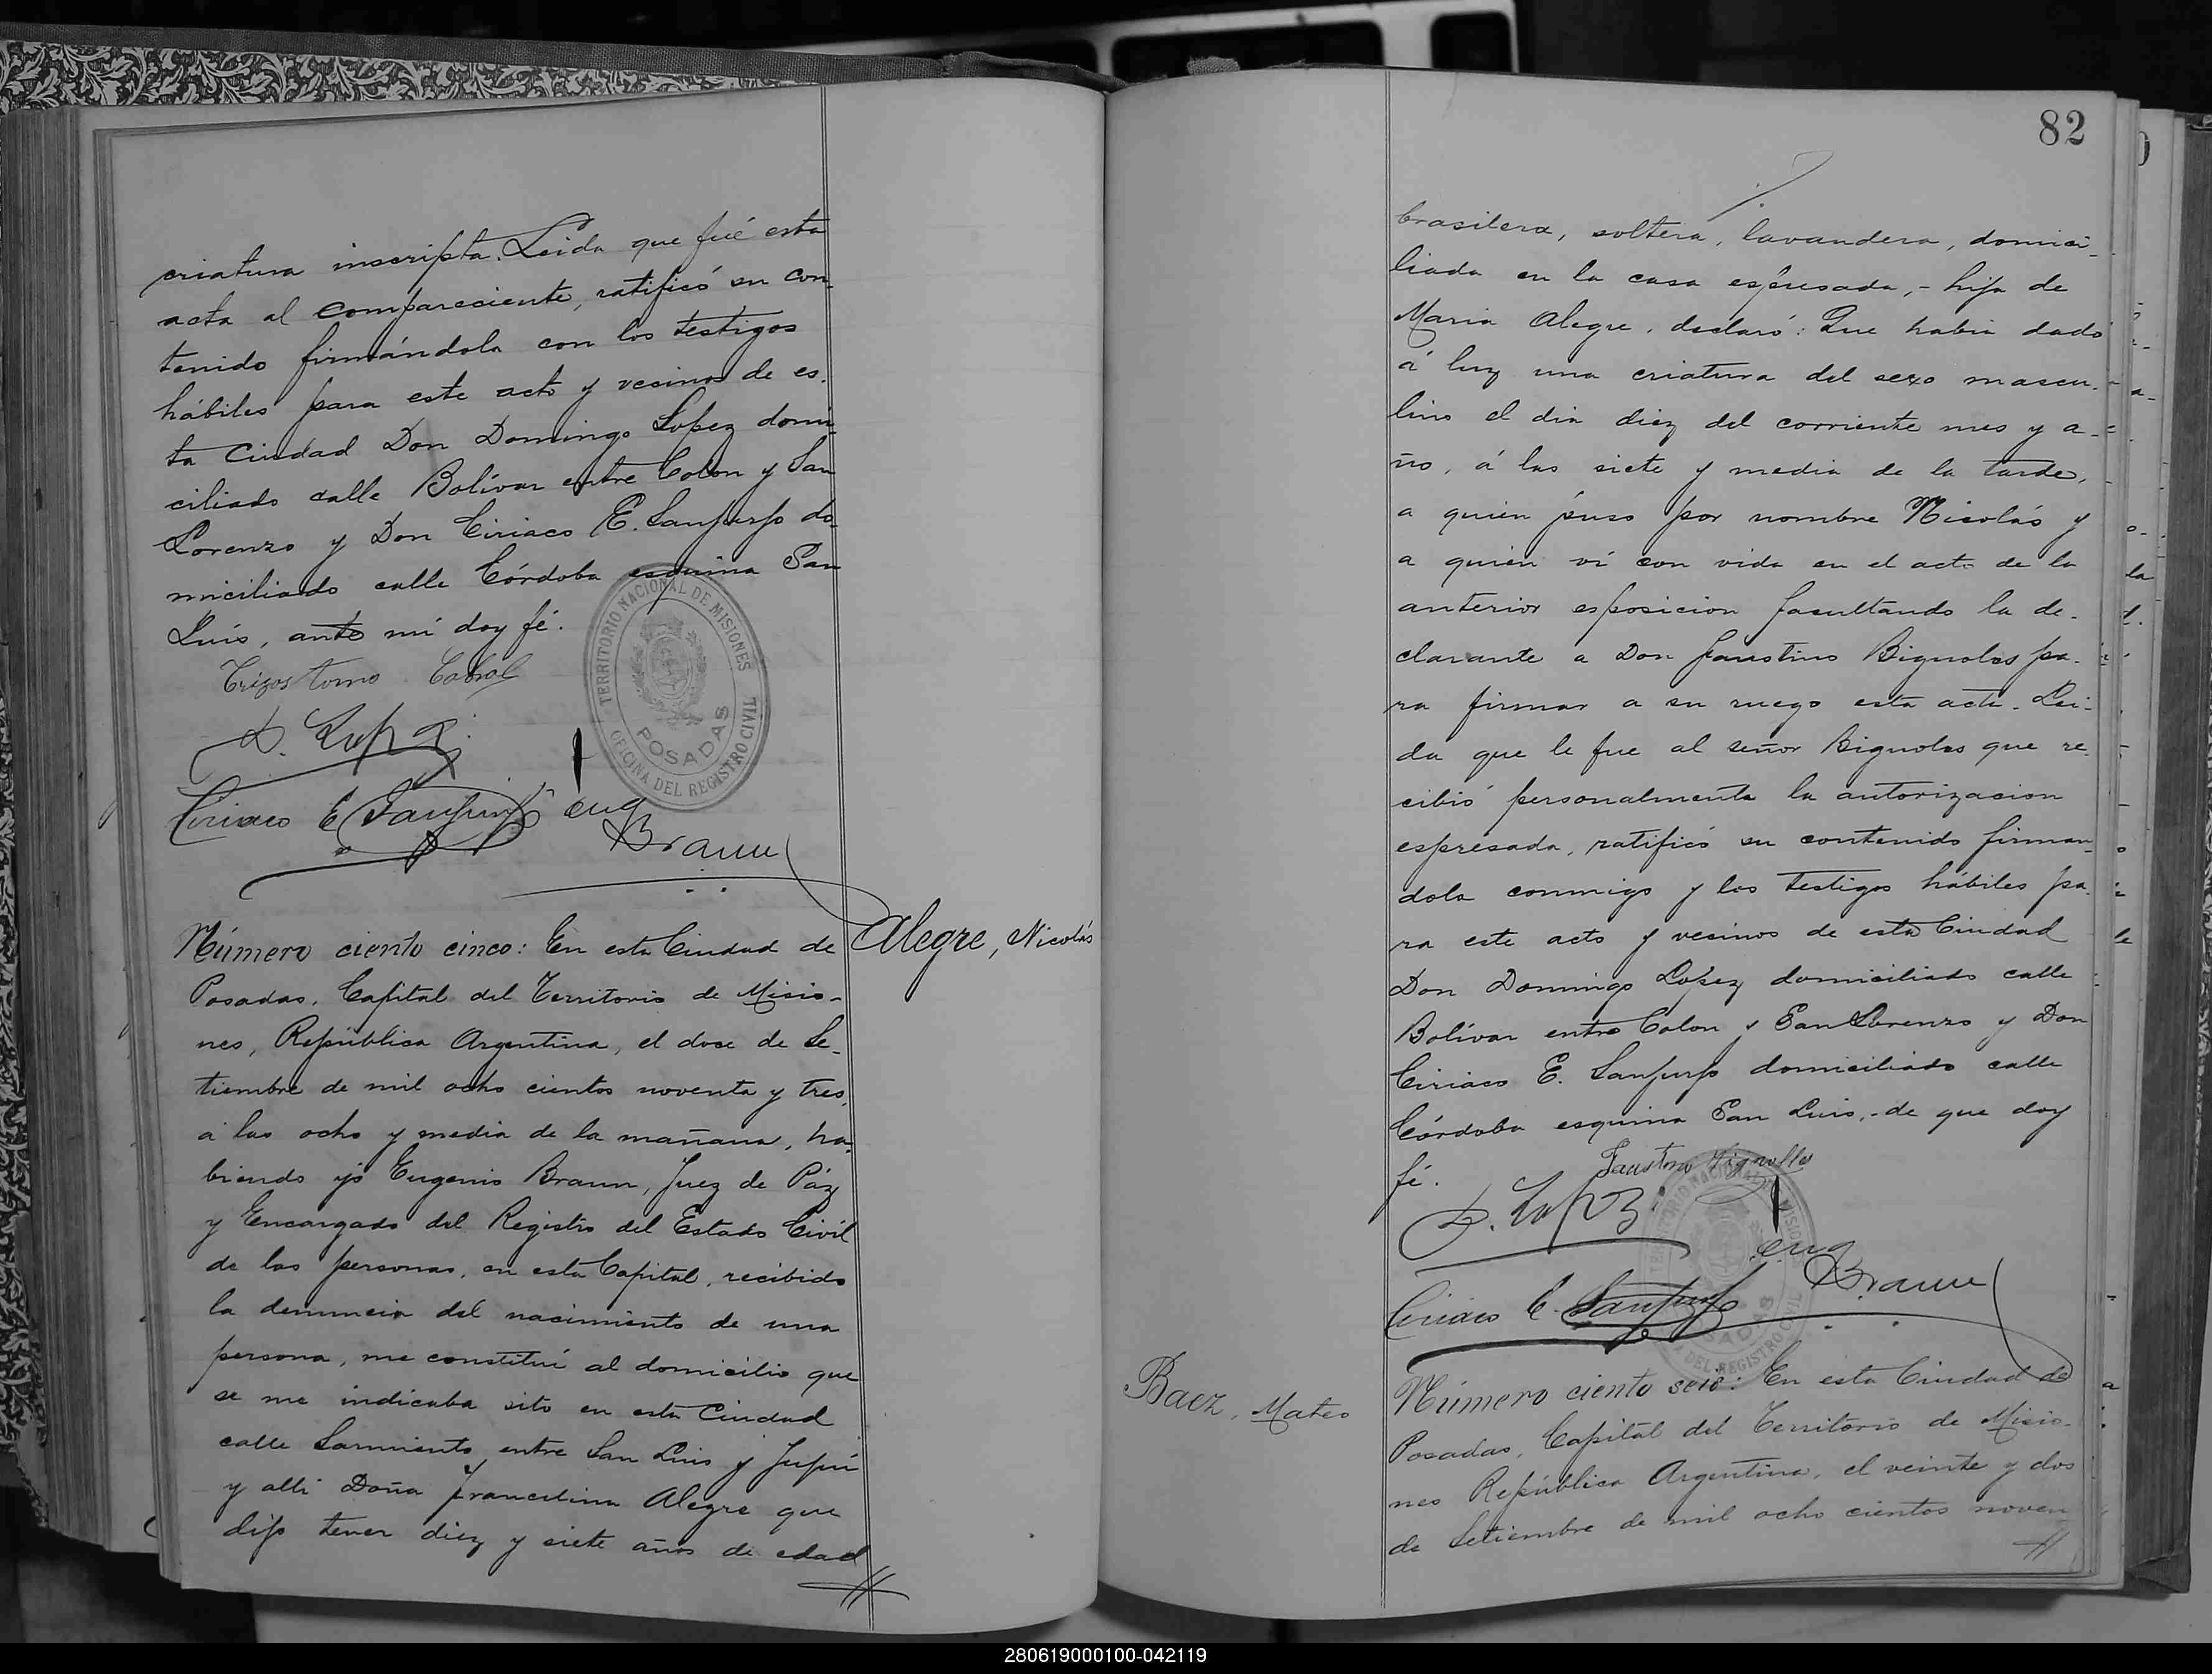 criatura inscripta. Leida que fué esta
acta al compareciente, ratificó su con-
tenido firmándola con los testigos
hábiles para este acto y vecinos de es-
ta Ciudad Don Domingo Lopez domi-
ciliado calle Bolívar entre Colon y San
Lorenzo y Don Ciriaco E. Sanjurjo do-
miciliado calle Córdoba esquina San
Luis, ante mi doy fé.
Crizostomo Cabral
D. Lopez
Ciriaco E Sanjurjo
Eug Braun
TERRITORIO NACIONAL DE MISIONES
POSADAS
OFICINA DEL REGISTRO CIVIL
Alegre, Nicolás
Número ciento cinco: En esta Ciudad de
Posadas, Capital del Territorio de Misio-
nes, República Argentina, el doce de Se-
tiembre de mil ocho cientos noventa y tres,
á las ocho y media de la mañana, ha-
biendo yo Eugenio Braun, Juez de Páz
y Encargado del Registro del Estado Civil
de las personas, en esta Capital, recibido
la denuncia del nacimiento de una
persona, me constitui al domicilio que
se me indicaba sito en esta Ciudad
calle Sarmiento entre San Luis y Jujui
y alli Doña Francelina Alegre que
dijo tener diez y siete años de edad
82
brasilera, soltera, lavandera, domici-
liada en la casa espresada,- hija de
Maria Alegre, declaró: Que habia dado
á luz una criatura del sexo mascu-
lino el dia diez del corriente mes y a-
ño, á las siete y media de la tarde,
a quien puso por nombre Nicolás y
a quien ví con vida en el acto de la
anterior esposicion facultando la de-
clarante a Don Faustino Bignoles pa-
ra firmar a su ruego esta acta. Lei-
da que le fue al señor Bignoles que re-
cibió personalmente la autorizacion
espresada, ratificó su contenido firman-
dola conmigo y los testigos hábiles pa-
ra este acto y vesinos de esta Ciudad
Don Domingo Lopez domiciliado calle
Bolívar entre Colon y San Lorenzo y Don
Ciriaco E. Sanjurjo domiciliado calle
Córdoba esquina San Luis,- de que doy
fé.
Faustino Vignolles
D. Lopez
Eug Braun
Ciriaco E. Sanjurjo
Baez, Mateo
Número ciento seis: En esta Ciudad de
Posadas, Capital del Territorio de Misio-
nes República Argentina, el veinte y dos
de Setiembre de mil ocho cientos noven
280619000100-042119